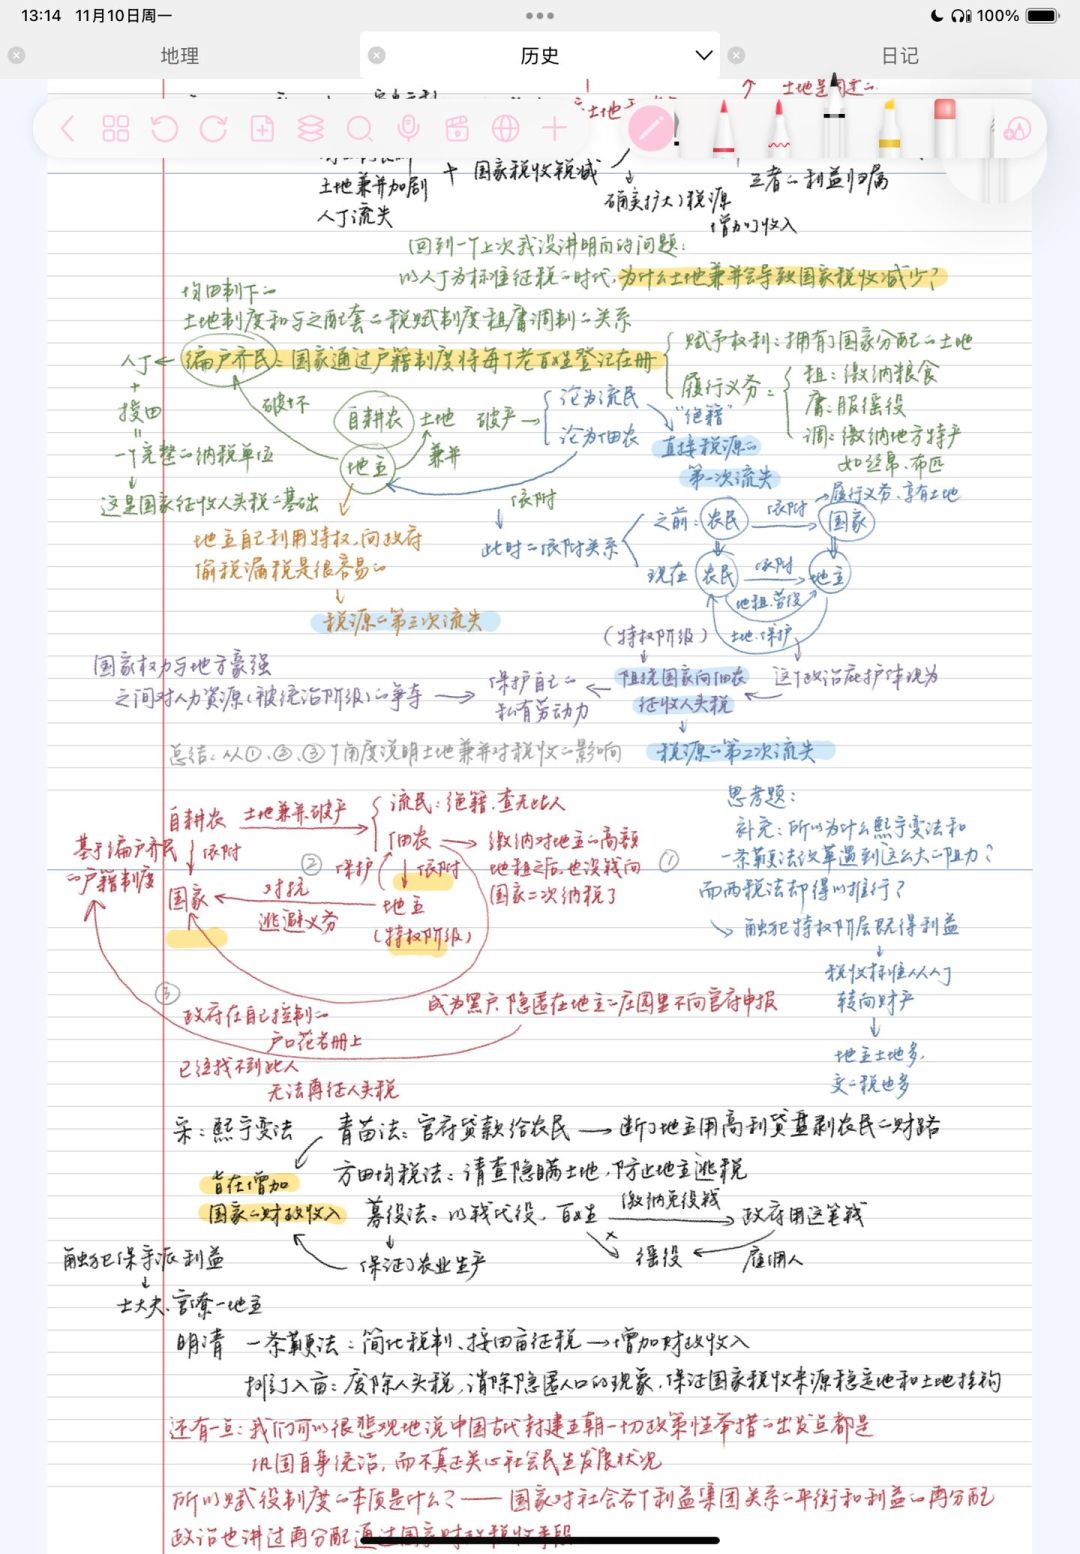 13:14 11月10日周一
100%
地理
历史
日记
土地兼并加剧
人丁流失
+ 国家税收锐减
确实扩大了税源
增加了收入
三者の利益归属
回到一个上次我没讲明白的问题:
以人丁为标准征税の时代,为什么土地兼并会导致国家税收减少?
均田制下の
土地制度和与之配套の税赋制度租庸调制の关系
人丁
+
授田
=
一个完整の纳税单位
这是国家征收人头税の基础
编户齐民:国家通过户籍制度将每个老百姓登记在册
赋予权利:拥有了国家分配の土地
履行义务:
租:缴纳粮食
庸:服徭役
调:缴纳地方特产
如丝帛、布匹
破坏
自耕农
土地
兼并
地主
破产
沦为流民
沦为佃农
"绝籍"
直接税源の
第一次流失
依附
此时の依附关系
之前:农民
依附
国家
履行义务、享有土地
现在
农民
依附
地主
地租、劳役
土地、保护
地主自己利用特权,向政府
偷税漏税是很容易の
税源の第三次流失
(特权阶级)
国家权力与地方豪强
之间对人力资源(被统治阶级)の争夺
保护自己の
私有劳动力
阻挠国家向佃农
征收人头税
这个政治庇护体现为
税源の第二次流失
总结:从①、②、③个角度说明土地兼并对税收の影响
自耕农
土地兼并、破产
流民:绝籍、查无此人
佃农
缴纳对地主の高额
地租之后,也没钱向
国家二次纳税了
①
基于编户齐民
の户籍制度
依附
国家
②
保护
依附
对抗
逃避义务
地主
(特权阶级)
③
政府在自己控制の
户口花名册上
已经找不到此人
无法再征人头税
成为黑户,隐匿在地主の庄园里不向官府申报
思考题:
补充:所以为什么熙宁变法和
一条鞭法改革遇到这么大の阻力?
而两税法却得以推行?
触犯特权阶层既得利益
税收标准从人丁
转向财产
地主土地多,
交の税也多
宋:熙宁变法
青苗法:官府贷款给农民→断了地主用高利贷盘剥农民の财路
旨在增加
国家の财政收入
方田均税法:清查隐瞒土地,防止地主逃税
募役法:以钱代役,百姓
缴纳免役钱
政府用这笔钱
徭役
雇佣人
保证了农业生产
触犯保守派利益
士大夫、官僚—地主
明清
一条鞭法:简化税制、按田亩征税→增加财政收入
摊丁入亩:废除人头税,消除隐匿人口的现象,保证国家税收来源稳定地和土地挂钩
还有一点:我们可以很悲观地说中国古代封建王朝一切政策性举措の出发点都是
巩固自身统治,而不真正关心社会民生发展状况
所以赋役制度の本质是什么?——国家对社会各个利益集团关系の平衡和利益の再分配
政治也讲过再分配通过国家财政税收手段